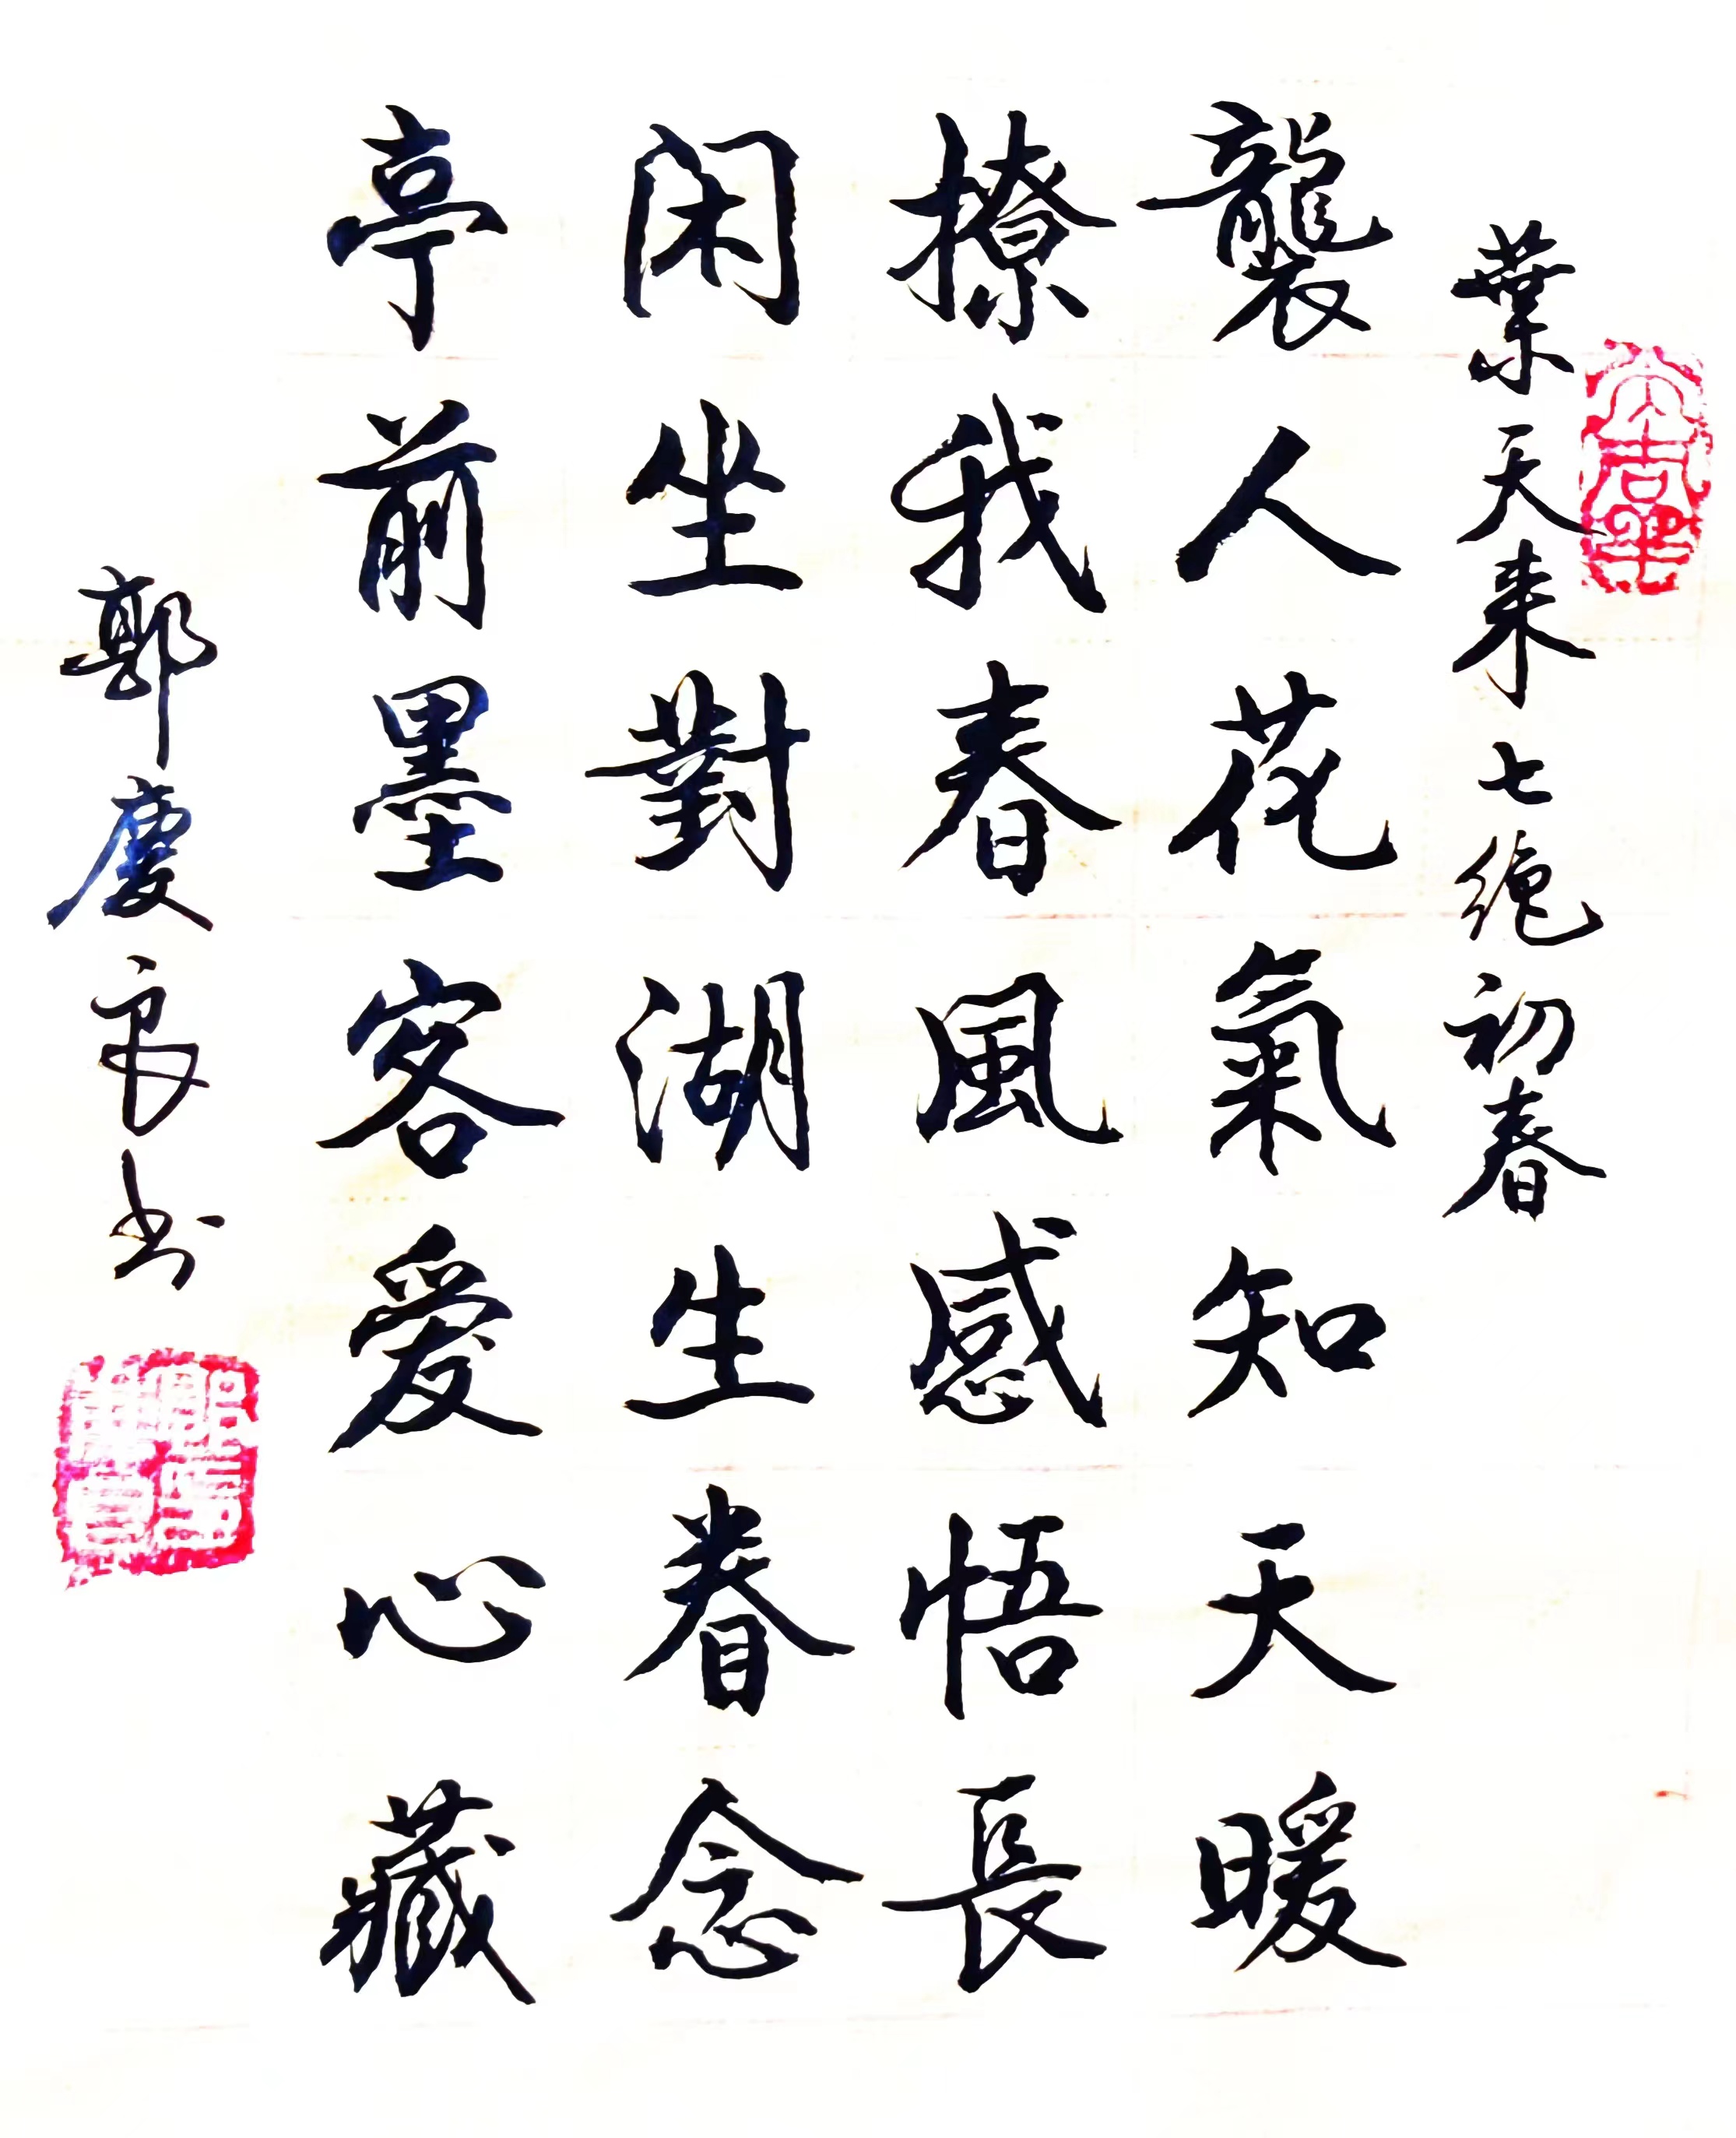 葉天来七绝初春
襲人花氣知天暖
撩我春風感悟長
闲坐對湖生眷念
亭前墨客爱心藏
郭慶良书